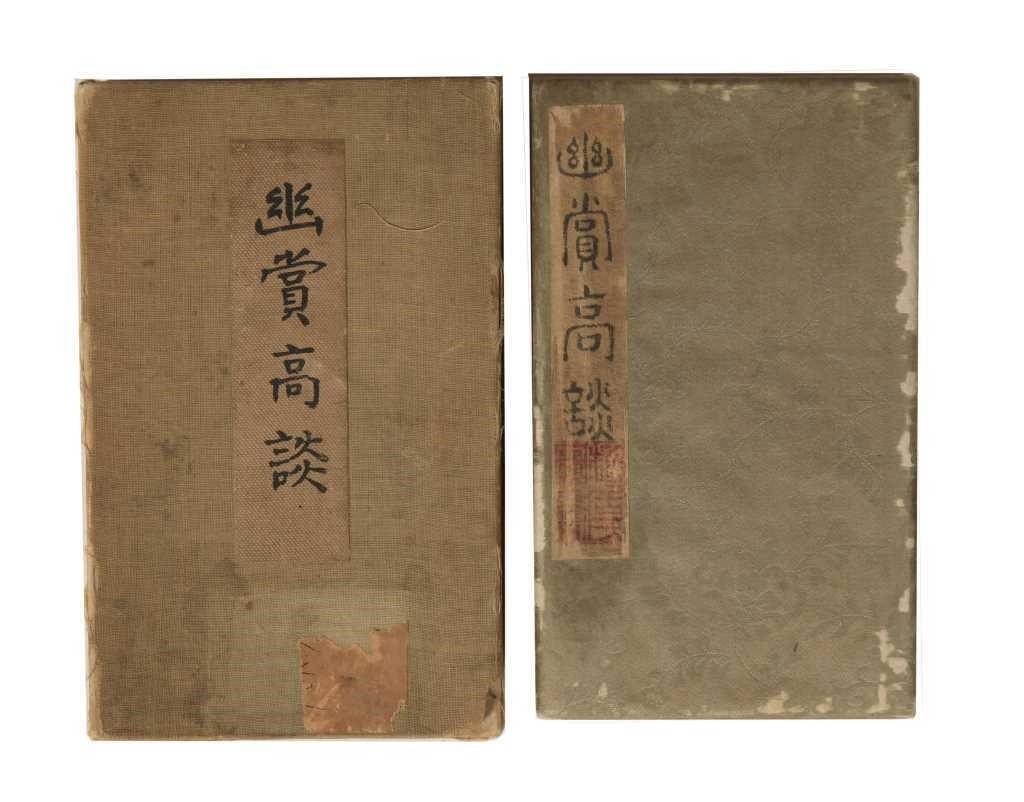 幽賞高談
幽賞高談